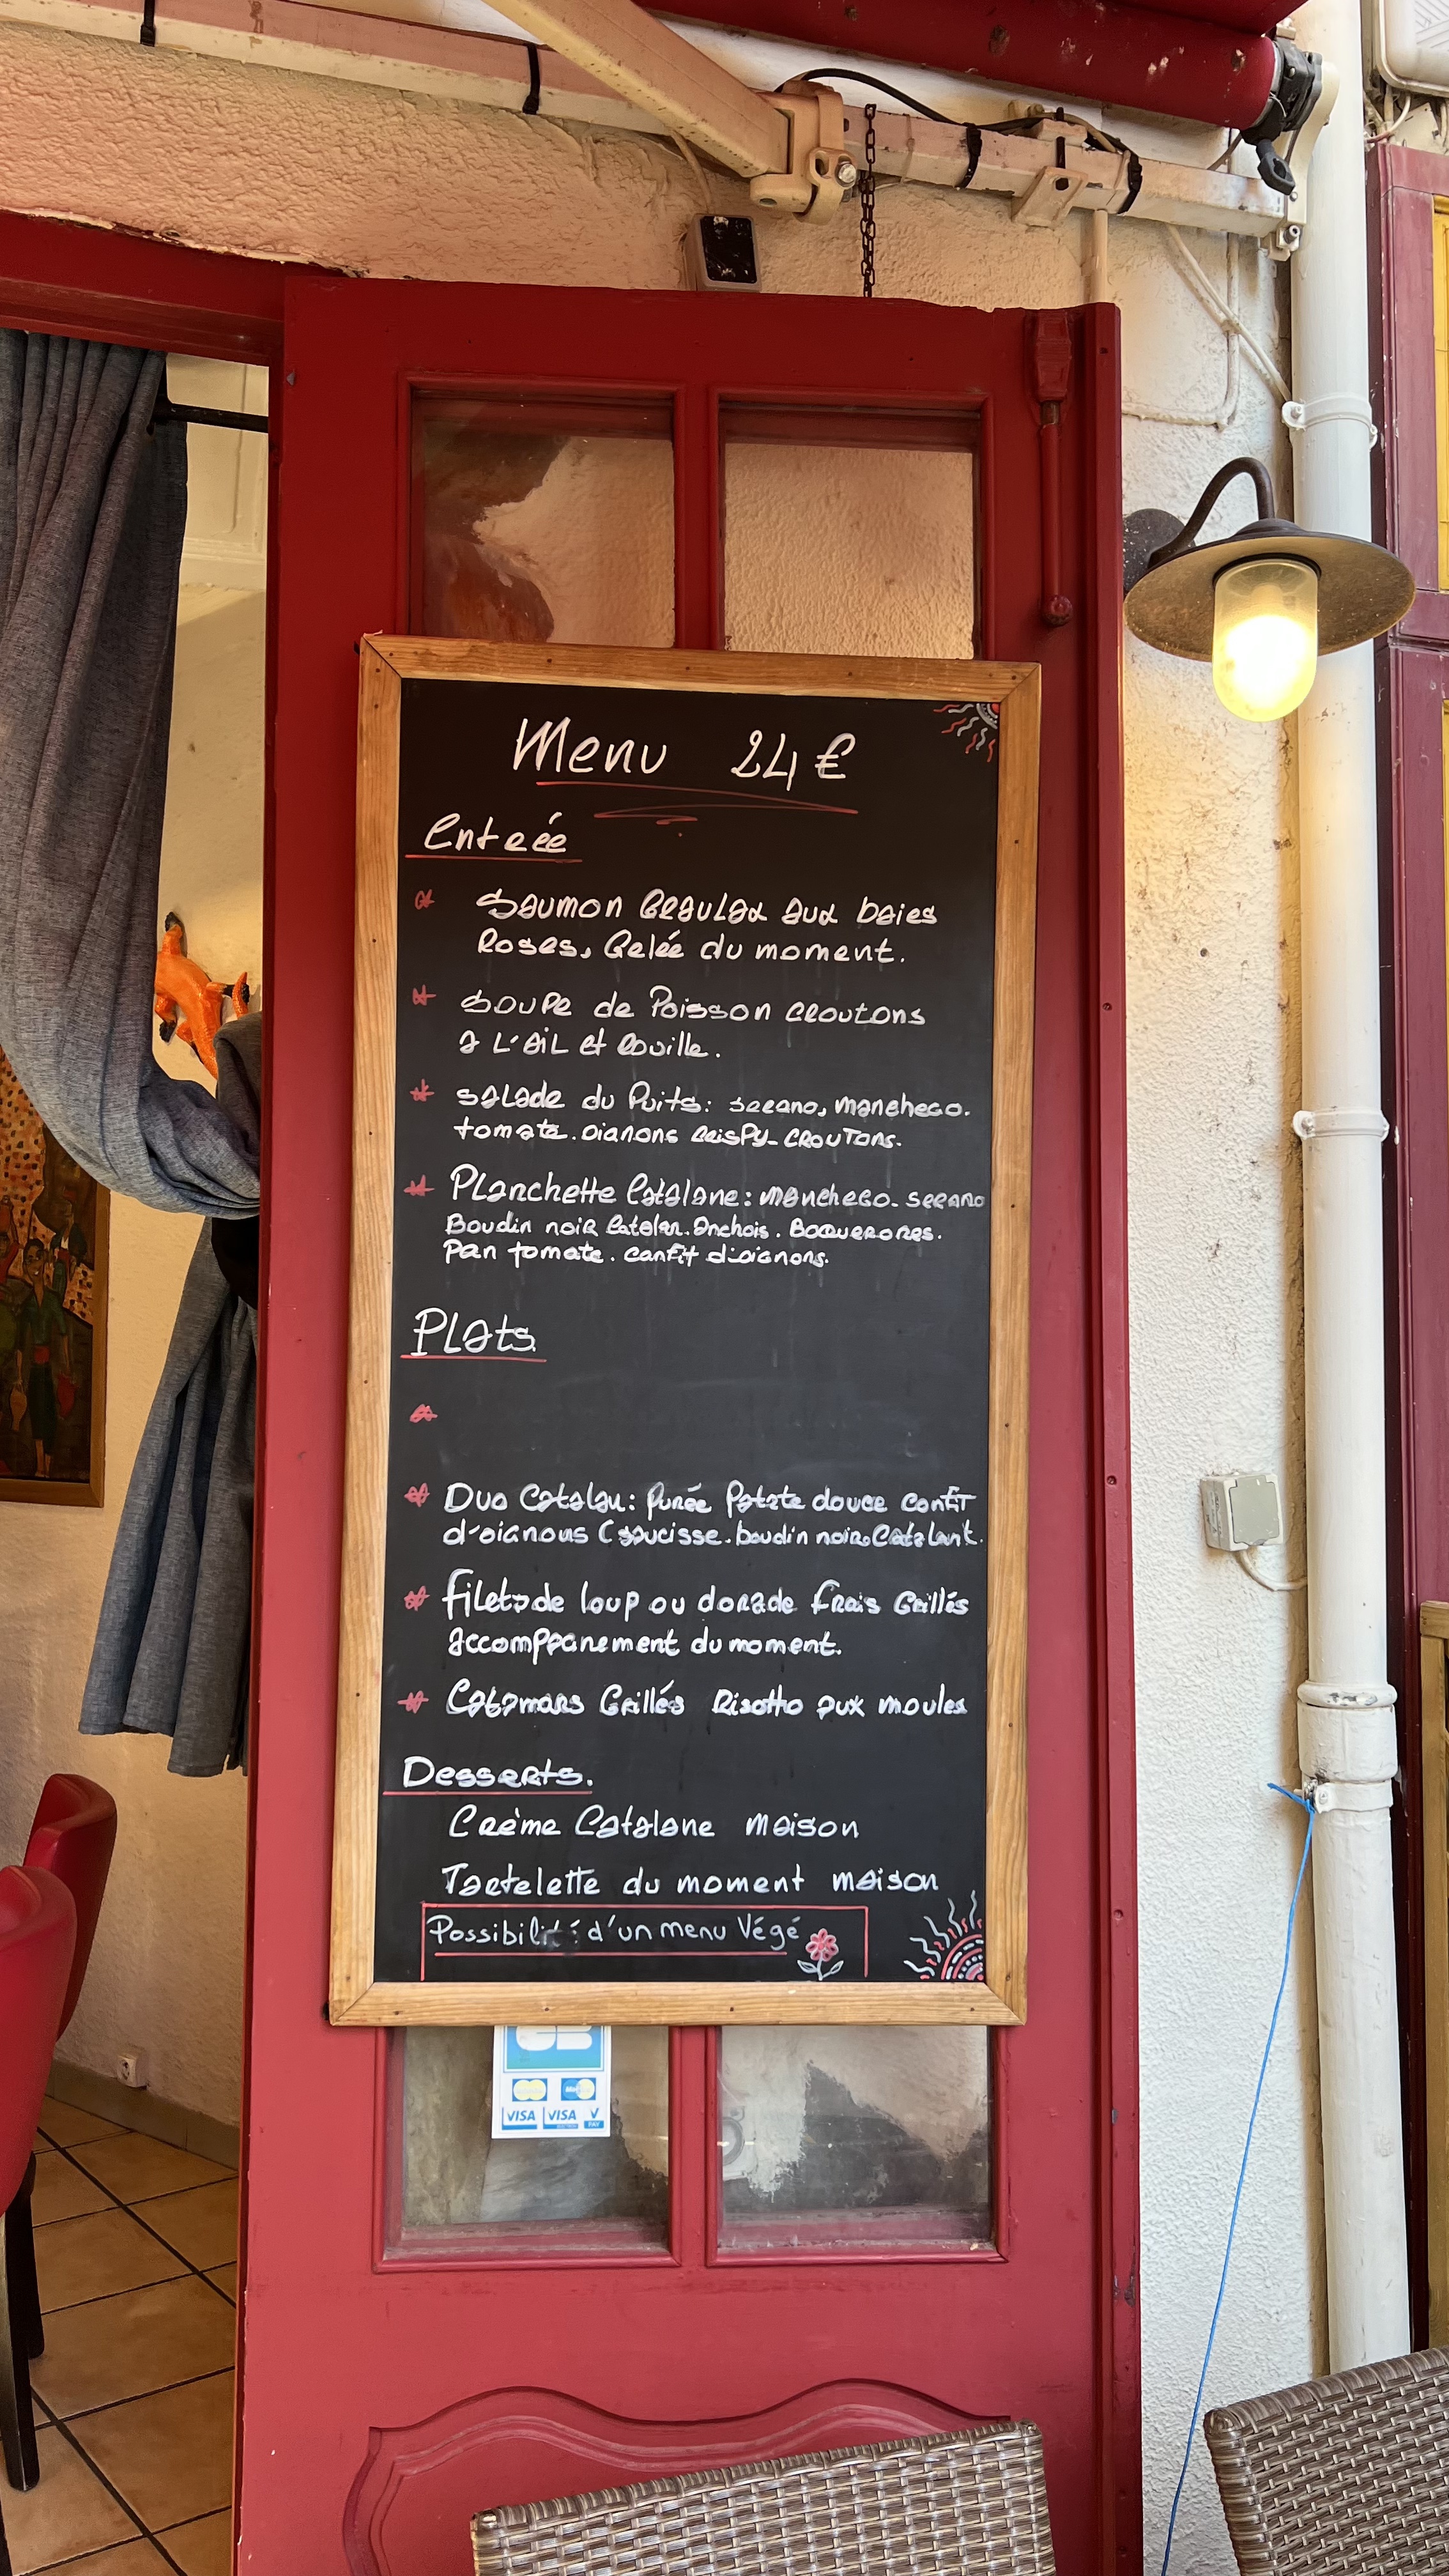 Menu 24€
Entrée
Saumon Gravlax aux baies
Roses, Gelée du moment.
Soupe de Poisson croutons
a L'aiL et rouille.
salade du Puits: serano, mancheco.
tomate. oignons crispy_ croutons.
Planchette Catalane: mancheco. serano
Boudin noir Catalan. Anchois. Boquerones.
Pan tomate. confit d'oignons.
Plats
Duo Catalan: purée Patate douce confit
d'oignons (saucisse. boudin noir
Filets de loup ou dorade frais Grillés
accompagnement du moment.
Grillés Risotto aux moules
Desserts.
Crème Catalane maison
Tartelette du moment maison
Possibilité d'un menu Végé
VISA VISA V
PAY